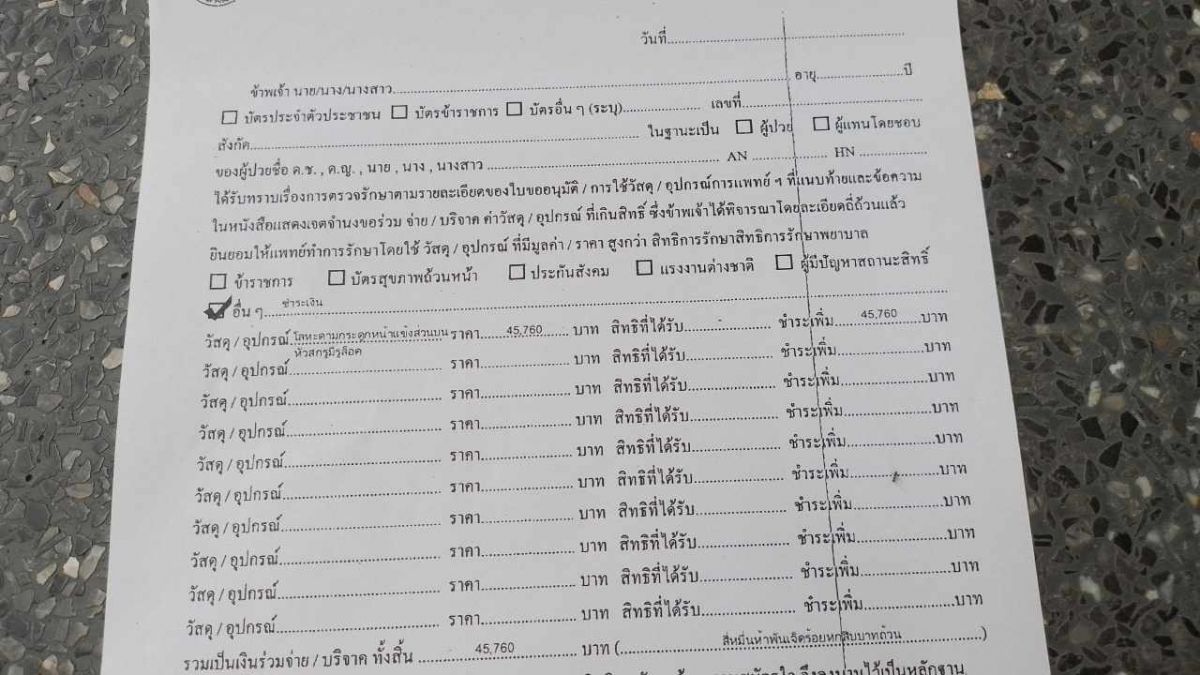 วันที่
ข้าพเจ้า นาย/นาง/นางสาว อายุ ปี
☐ บัตรประจำตัวประชาชน ☐ บัตรข้าราชการ ☐ บัตรอื่น ๆ (ระบุ) เลขที่
สังกัด ในฐานะเป็น ☐ ผู้ป่วย ☐ ผู้แทนโดยชอบ
ของผู้ป่วยชื่อ ด.ช. , ด.ญ. , นาย , นาง , นางสาว AN HN
ได้รับทราบเรื่องการตรวจรักษาตามรายละเอียดของใบขออนุมัติ / การใช้วัสดุ / อุปกรณ์การแพทย์ ฯ ที่แนบท้ายและข้อความ
ในหนังสือแสดงเจตจำนงขอร่วม จ่าย / บริจาค ค่าวัสดุ / อุปกรณ์ ที่เกินสิทธิ์ ซึ่งข้าพเจ้าได้พิจารณาโดยละเอียดถี่ถ้วนแล้ว
ยินยอมให้แพทย์ทำการรักษาโดยใช้ วัสดุ / อุปกรณ์ ที่มีมูลค่า / ราคา สูงกว่า สิทธิการรักษาสิทธิการรักษาพยาบาล
☐ ข้าราชการ ☐ บัตรสุขภาพถ้วนหน้า ☐ ประกันสังคม ☐ แรงงานต่างชาติ ☐ ผู้มีปัญหาสถานะสิทธิ์
☑ อื่น ๆ ชำระเงิน
วัสดุ / อุปกรณ์ โลหะดามกระดูกหน้าแข้งส่วนบน ราคา 45,760 บาท สิทธิที่ได้รับ - ชำระเพิ่ม 45,760 บาท
วัสดุ / อุปกรณ์ หัวสกรูมีรูล็อค ราคา บาท สิทธิที่ได้รับ ชำระเพิ่ม บาท
วัสดุ / อุปกรณ์ ราคา บาท สิทธิที่ได้รับ ชำระเพิ่ม บาท
วัสดุ / อุปกรณ์ ราคา บาท สิทธิที่ได้รับ ชำระเพิ่ม บาท
วัสดุ / อุปกรณ์ ราคา บาท สิทธิที่ได้รับ ชำระเพิ่ม บาท
วัสดุ / อุปกรณ์ ราคา บาท สิทธิที่ได้รับ ชำระเพิ่ม บาท
วัสดุ / อุปกรณ์ ราคา บาท สิทธิที่ได้รับ ชำระเพิ่ม บาท
วัสดุ / อุปกรณ์ ราคา บาท สิทธิที่ได้รับ ชำระเพิ่ม บาท
วัสดุ / อุปกรณ์ ราคา บาท สิทธิที่ได้รับ ชำระเพิ่ม บาท
วัสดุ / อุปกรณ์ ราคา บาท สิทธิที่ได้รับ ชำระเพิ่ม บาท
รวมเป็นเงินร่วมจ่าย / บริจาค ทั้งสิ้น 45,760 บาท ( สี่หมื่นห้าพันเจ็ดร้อยหกสิบบาทถ้วน )